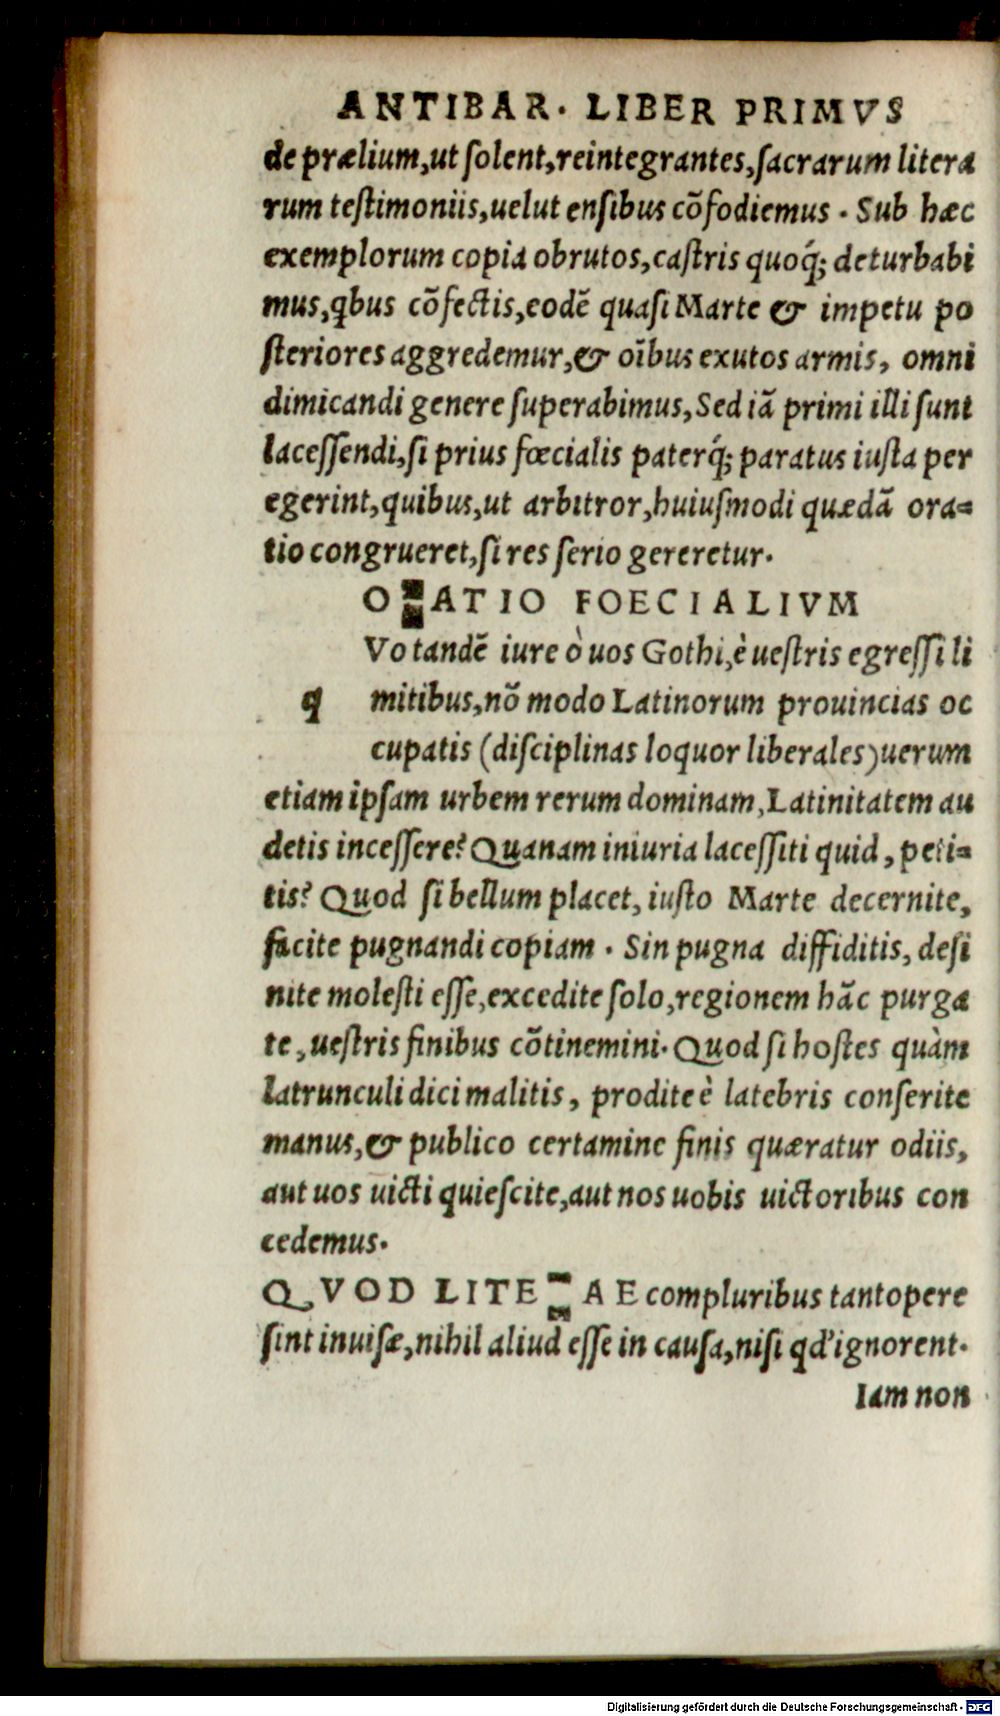 ANTIBAR. LIBER PRIMVS
de prælium,ut ſolent,reintegrantes,ſacrarum litera
rum teſtimoniis,uelut enſibus cõfodiemus . Sub hæc
exemplorum copia obrutos,caſtris quoq́; deturbabi
mus,qbus cõfectis,eodẽ quaſi Marte & impetu po
ſteriores aggredemur,& oĩbus exutos armis, omni
dimicandi genere ſuperabimus,Sed iã primi illi ſunt
laceſſendi,ſi prius fœcialis paterq́; paratus iuſta per
egerint,quibus,ut arbitror,huiuſmodi quædã ora=
tio congrueret,ſi res ſerio gereretur.
ORATIO FOECIALIVM
Vo tandẽ iure ò uos Gothi,è ueſtris egreſſi li
q mitibus,nõ modo Latinorum prouincias oc
cupatis (diſciplinas loquor liberales)uerum
etiam ipſam urbem rerum dominam,Latinitatem au
detis inceſſere? Quanam iniuria laceſſiti quid, peti=
tis? Quod ſi bellum placet, iuſto Marte decernite,
facite pugnandi copiam . Sin pugna diffiditis, deſi
nite moleſti eſſe,excedite ſolo,regionem hãc purga
te, ueſtris finibus cõtinemini. Quod ſi hoſtes quàm
latrunculi dici malitis, prodite è latebris conſerite
manus,& publico certamine finis quæratur odiis,
aut uos uicti quieſcite,aut nos uobis uictoribus con
cedemus.
QVOD LITERAE compluribus tantopere
ſint inuiſæ,nihil aliud eſſe in cauſa,niſi qd' ignorent.
Iam non
Digitalisierung gefördert durch die Deutsche Forschungsgemeinschaft - DFG